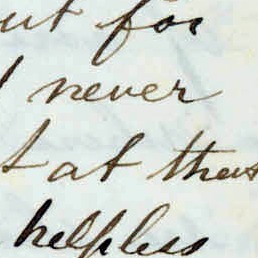 ut for
never
t at thes
helpless